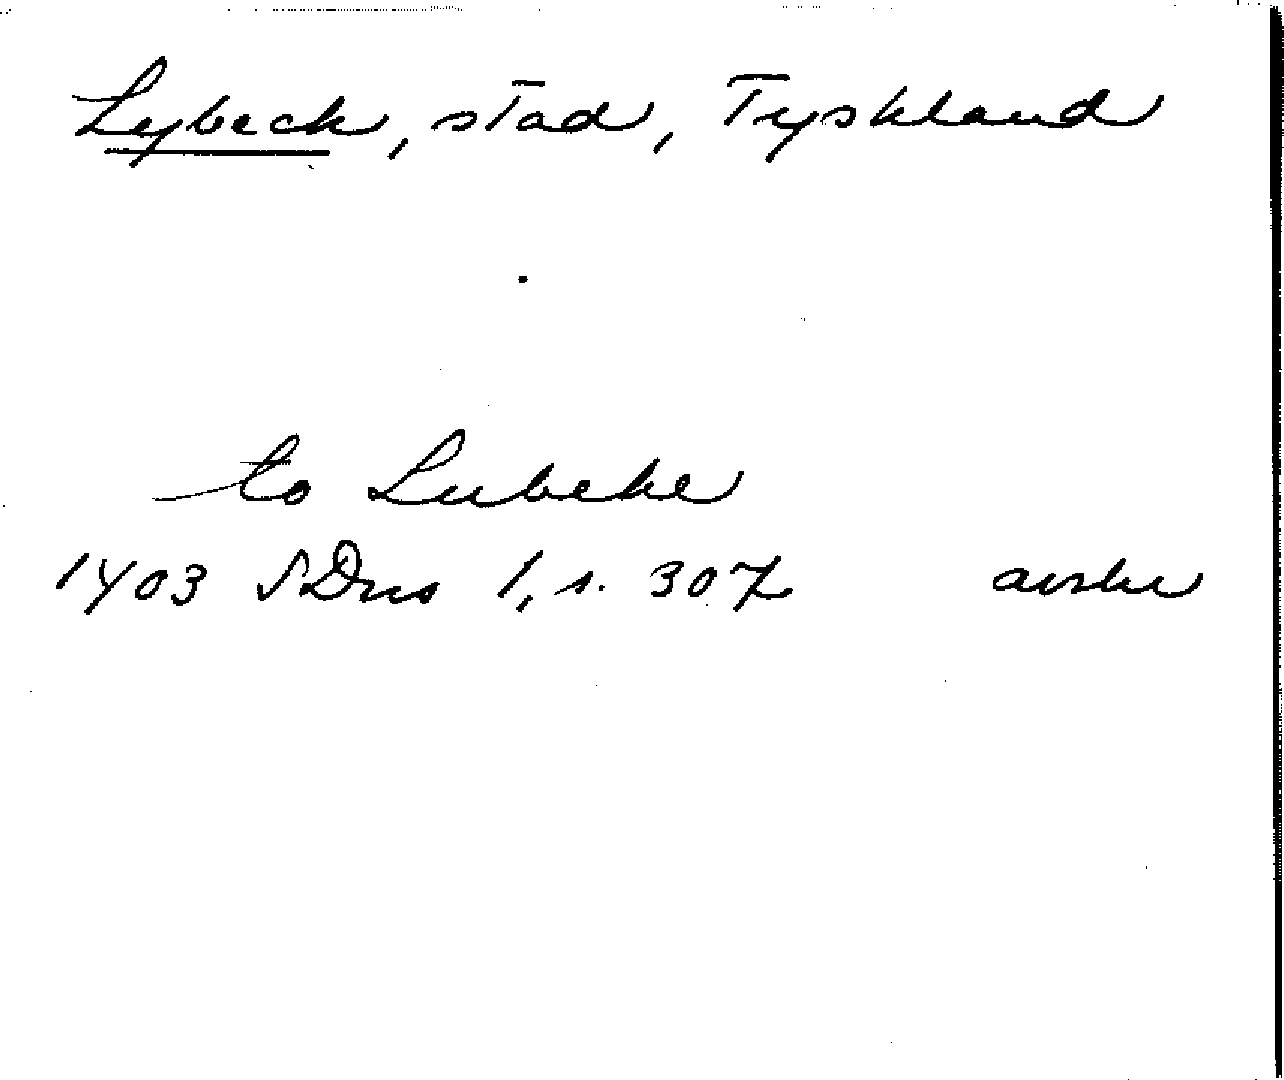 Lybeck, stad, Tyskland
to Lubeke
1403 SDns 1, s. 307 avskr